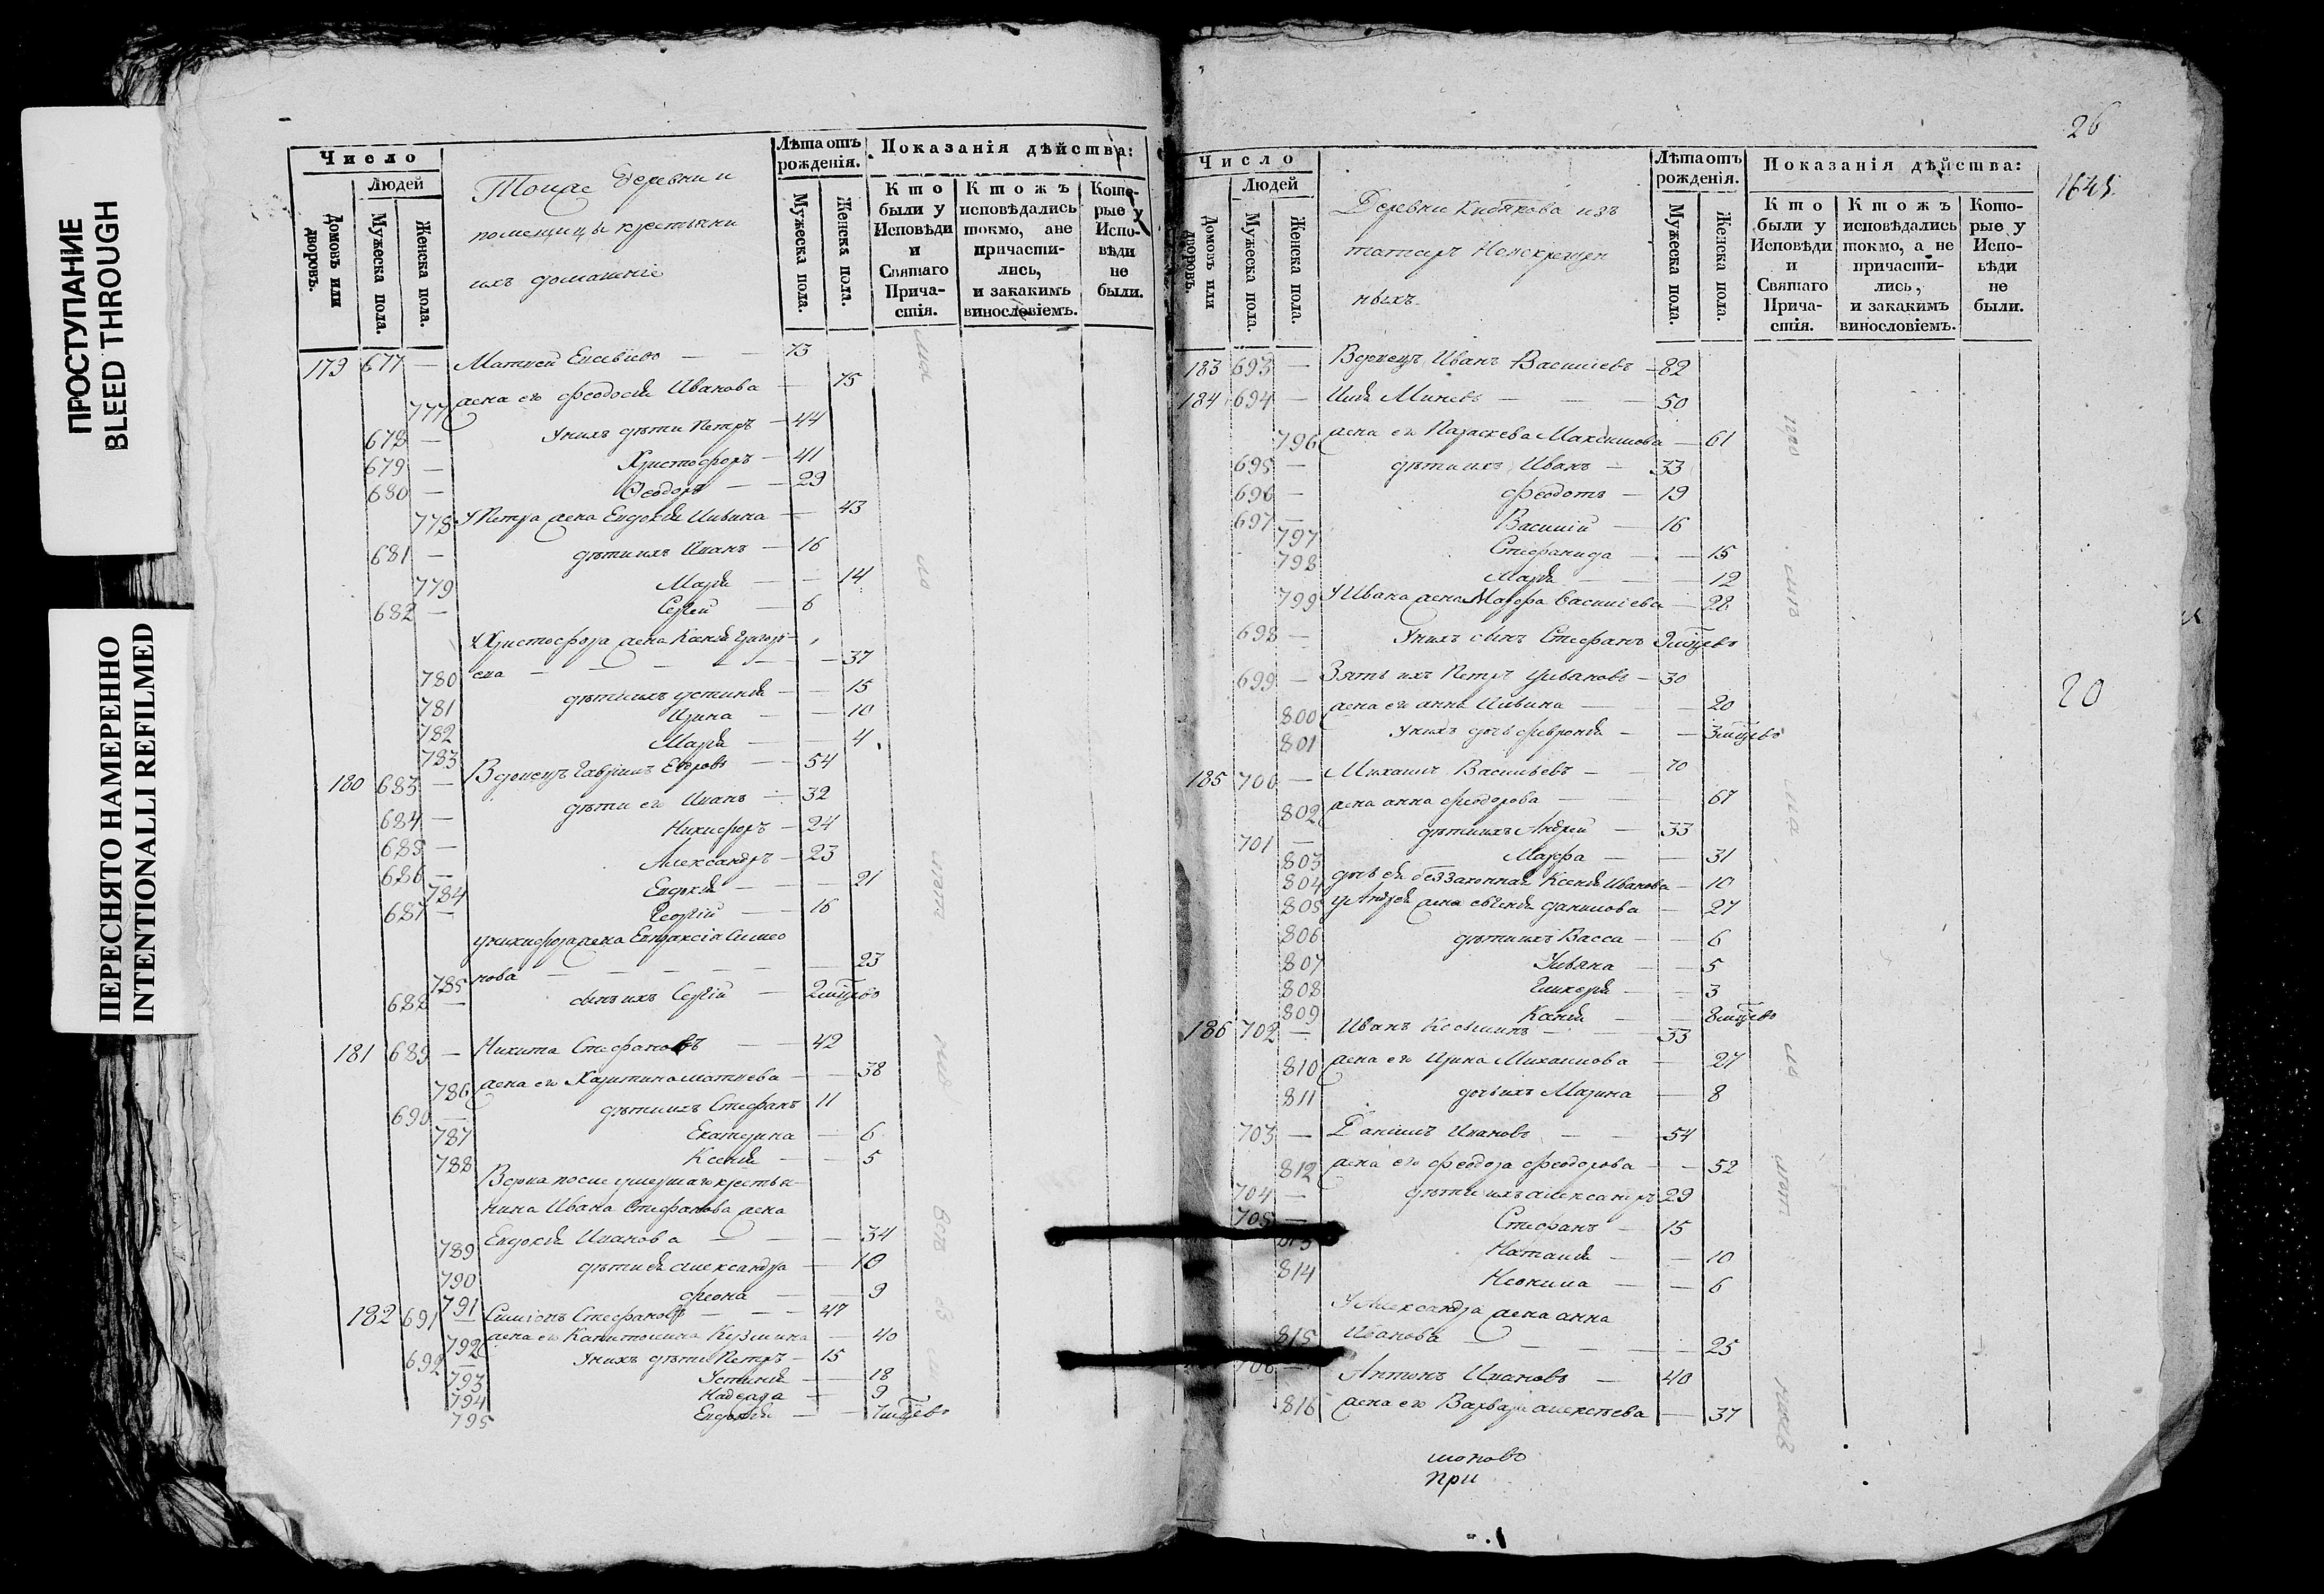 ПРОСТУПАНИЕ
BLEED THROUGH
ПЕРЕСНЯТО НАМЕРЕННО
INTENTIONALLI REFILMED
Число
Людей
Домовъ или дворовъ.
Мужеска пола.
Женска пола.
Тоиже деревни и
помещицы крестьяни
ихъ домашніе
Лѣта отъ рожденія.
Мужеска пола.
Женскъ пола.
Показанія дѣйства:
Кто были у Исповѣди и Святаго Причастія.
Ктожъ исповѣдались токмо, ане причастились, и закакимъ винословіемъ.
Которые у Исповѣди не были.
179 677 — Матвей Евсевiевъ — 73
777 жена его Феодосія Иванова — 75
678 — У нихъ дѣти Петръ — 44
679 — Христофоръ — 41
680 — Феодоръ — 29
778 У Петра жена Евдокія Ильина — 43
681 — дѣти ихъ Иванъ — 16
779 Марія — 14
682 — Сергей — 6
У Христофора жена Ксенія Григорь-
780 ева — 37
781 дѣти ихъ Устинія — 15
782 Ирина — 10
783 Марія — 4
180 683 — Вдовецъ Гавріилъ Егоровъ — 54
684 — дѣти его Иванъ — 32
685 — Никифоръ — 24
686 — Александръ — 23
784 Евдокія — 21
687 — Георгій — 16
у Никифора жена Евпраксія Симео
785 нова — 23
688 — сынъ ихъ Сергій — 2 мцевъ
181 689 — Никита Стефановъ — 42
786 жена его Харитина Матвева — 38
690 — дѣти ихъ Стефанъ 11
787 Екатерина — 6
788 Ксенія — 5
Вдова после умершаго крестья-
нина Ивана Стефанова жена
789 Евдокія Иванова — 34
790 дѣти ея Александра — 10
791 Феона — 9
182 691 — Симіонъ Стефановъ — 47
792 жена его Капитолина Кузмина — 40
692 — У нихъ дѣти Петръ — 15
793 Устинія — 18
794 Надежда — 9
795 Евдокія — 7 мцевъ
26
1645.
20
Число
Людей
Домовъ или дворовъ.
Мужеска пола.
Женска пола.
Деревни Кибякова изъ
татаръ Новокрещен
ныхъ
Лѣта отъ рожденія.
Мужеска пола.
Женска пола.
Показанія дѣйства:
Кто были у Исповѣди и Святаго Причастія.
Ктожъ исповѣдались токмо, а не причастились, и закакимъ винословіемъ.
Которые у Исповѣди не были.
183 693 — Вдовецъ Иванъ Василіевъ — 82
184 694 — Илія Миневъ — 50
796 жена его Параскева Максимова — 61
695 — дѣти ихъ Иванъ — 33
696 — Феодотъ — 19
697 — Василій — 16
797 Стефанида — 15
798 Марія — 12
799 У Ивана жена Марфа Василіева — 28
698 — У нихъ сынъ Стефанъ 9 мцевъ
699 — Зять ихъ Петръ Ивановъ — 30
800 жена его Анна Ильина — 20
801 У нихъ дочь Февронія — 3 мцевъ
185 700 — Михаилъ Васильевъ — 70
802 жена Анна Феодорова — 67
701 — дѣти ихъ Андрей — 33
803 Марфа — 31
804 дочь ея беззаконная Ксенія Иванова — 10
805 у Андрея жена Евгенія Данилова — 27
806 дѣти ихъ Васса — 6
807 Ульяна — 5
808 Гликерія — 3
809 Ксенія — 8 мцевъ
186 702 — Иванъ Косминъ — 33
810 жена его Ирина Михаилова — 27
811 дочь ихъ Марина — 8
703 — Даніилъ Ивановъ — 54
812 жена его Феодора Феодорова — 52
704 — дѣти ихъ Александръ 29
705 — Стефанъ — 15
813 Наталія — 10
814 Неонила — 6
У Александра жена Анна
815 Иванова — 25
706 — Антонъ Ивановъ — 40
816 жена его Варвара Алексѣева — 37
при